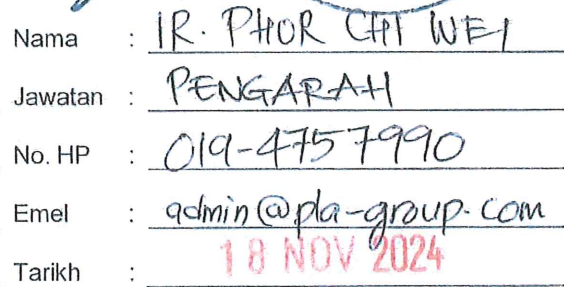 Nama : IR. PHOR CHI WEI
Jawatan : PENGARAH
No. HP : 019-4757990
Emel : admin@pla-group.com
Tarikh : 18 NOV 2024